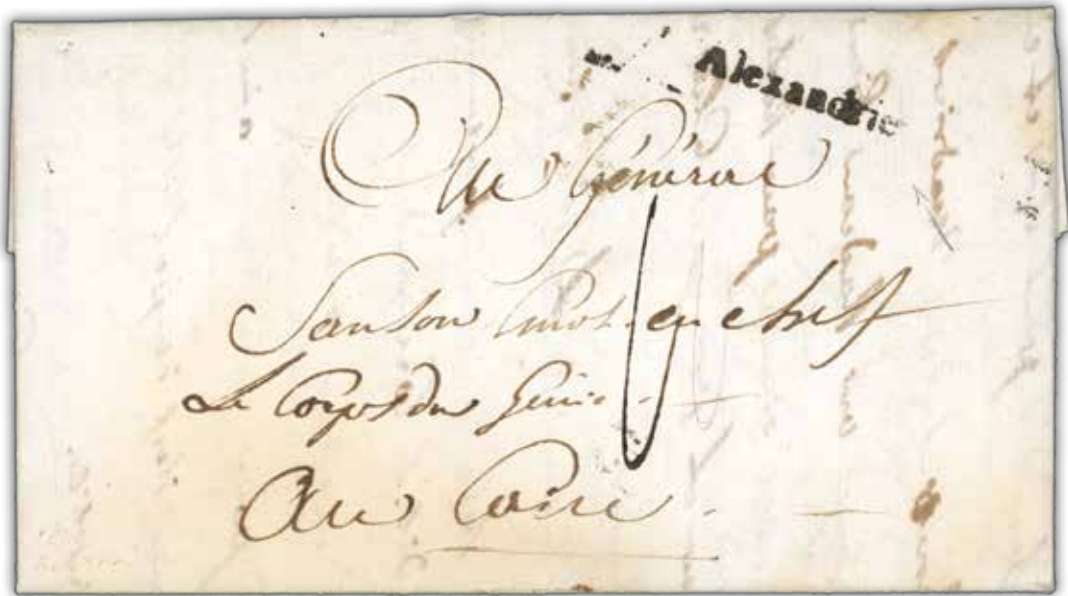 Alexandrie
Au Général
Sanson Comdt. en chef
Le Corps du Génie
Au Caire